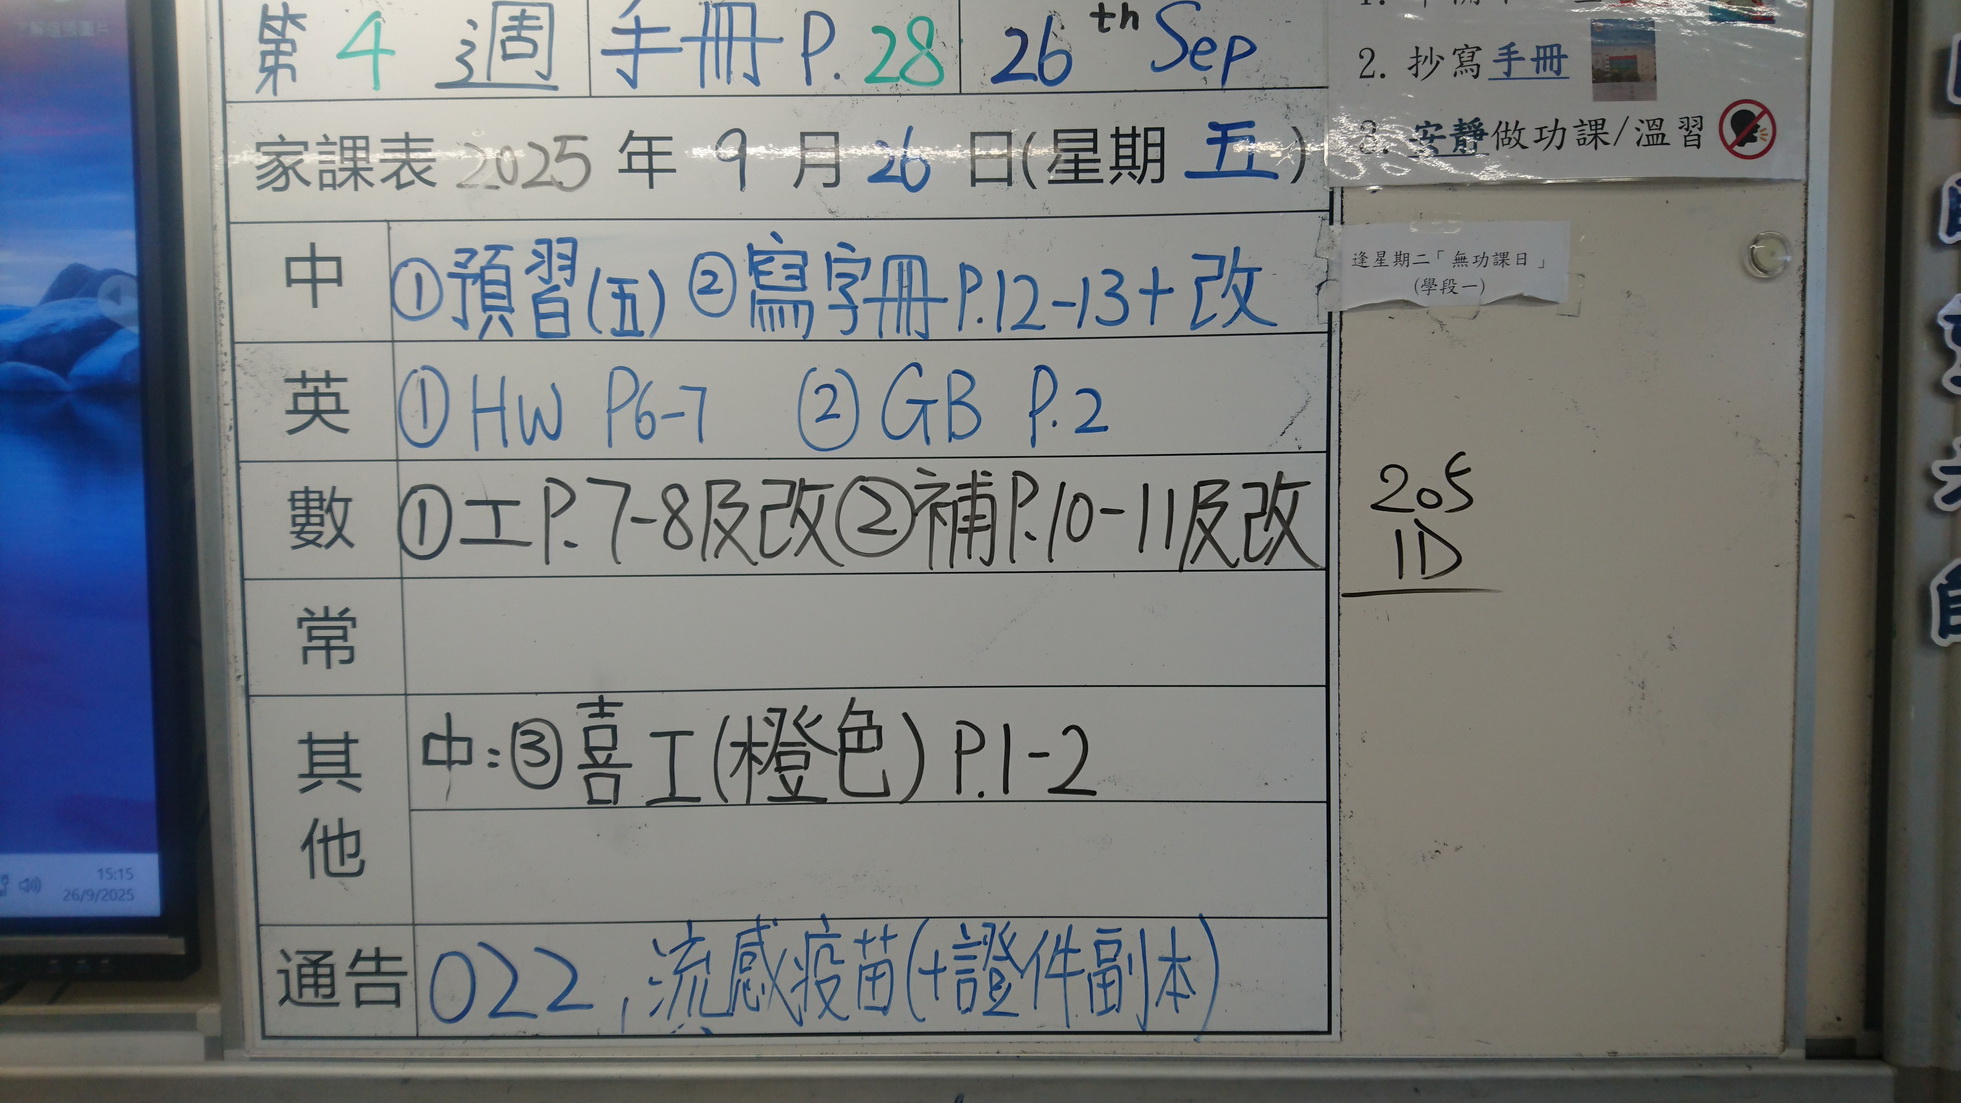 第 4 週 手冊 P. 28 26th Sep
家課表 2025 年 9 月 26 日(星期 五)
中 ①預習(五) ②寫字冊P.12-13+改
英 ①HW P6-7 ②GB P.2
數 ①工P.7-8及改②補P.10-11及改
常
其他 中:③喜工(橙色) P.1-2
通告 022,流感疫苗(+證件副本)
2. 抄寫手冊
3. 安靜做功課/溫習
逢星期二「無功課日」
(學段一)
205
1D
15:15
26/9/2025